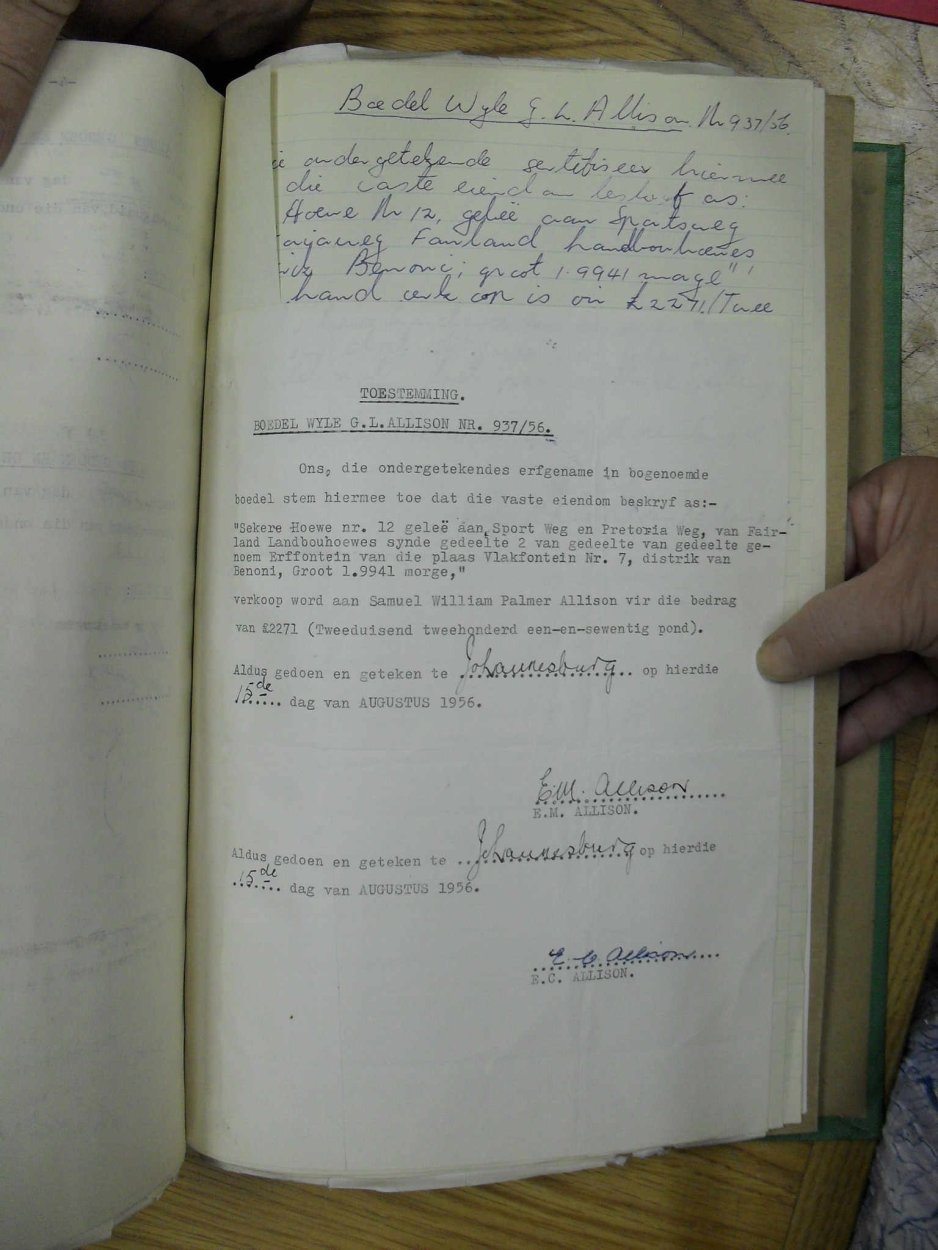 Boedel Wyle G. L. Allison Nr 937/56.
ondergetekende sertifiseer hiermee
die vaste eiendom beskryf as:
Hoewe Nr 12, geleë aan Sportsweg
Fairland Landbouhoewes
Benoni; groot 1.9941 morge"
£2271/Twee
TOESTEMMING.
BOEDEL WYLE G.L.ALLISON NR. 937/56.
Ons, die ondergetekendes erfgename in bogenoemde
boedel stem hiermee toe dat die vaste eiendom beskryf as:-
"Sekere Hoewe nr. 12 geleë aan Sport Weg en Pretoria Weg, van Fair-
land Landbouhoewes synde gedeelte 2 van gedeelte van gedeelte ge-
noem Erffontein van die plaas Vlakfontein Nr. 7, distrik van
Benoni, Groot 1.9941 morge,"
verkoop word aan Samuel William Palmer Allison vir die bedrag
van £2271 (Tweeduisend tweehonderd een-en-sewentig pond).
Aldus gedoen en geteken te Johannesburg op hierdie
15de dag van AUGUSTUS 1956.
E.M. Allison
E.M. ALLISON.
Aldus gedoen en geteken te Johannesburg op hierdie
15de dag van AUGUSTUS 1956.
E C Allison
E.C. ALLISON.